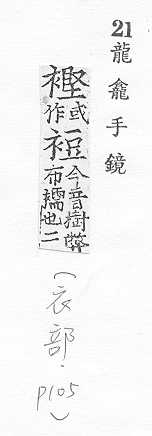 21 龍龕手鏡
或作
裋
今音樹弊
布襦也二
（衣部．p105）